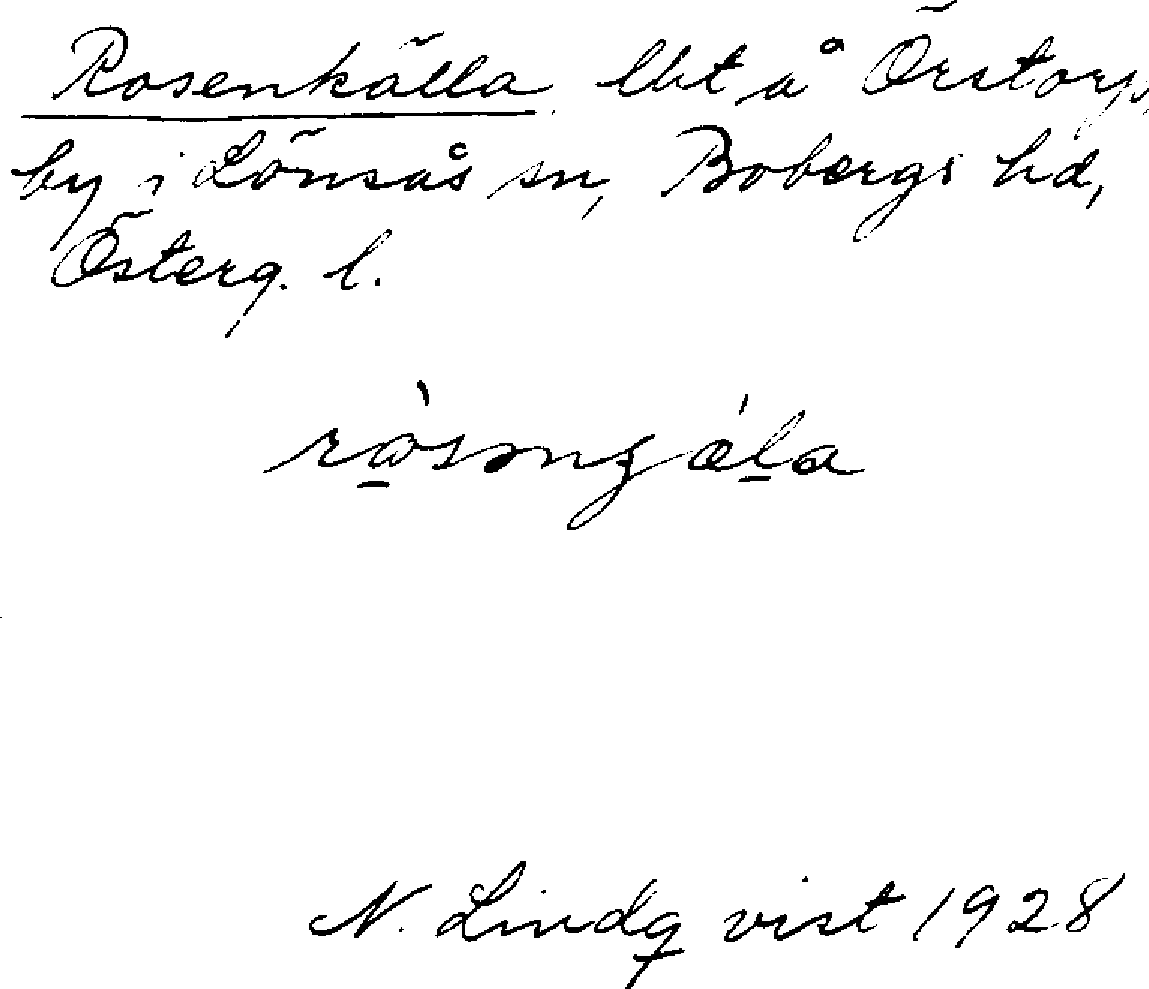 Rosenkälla lht å Örstorps
by i Lönsås sn, Bobergs hd,
Österg. l.
ròsəngǽla
N. Lindqvist 1928